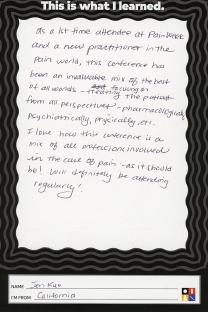 This is what I learned.
As a 1st time attendee at PainWeek
and a new practitioner in the
pain world, this conference has
been an invaluable mix of the best
of all worlds - and focusing on
treating the patient
from all perspectives - pharmacological,
psychiatrically, physically, etc.
I love how this conference is a
mix of all professions involved
in the care of pain - as it should
be! Will definitely be attending
regularly!
NAME Jen Kuo
I'M FROM California